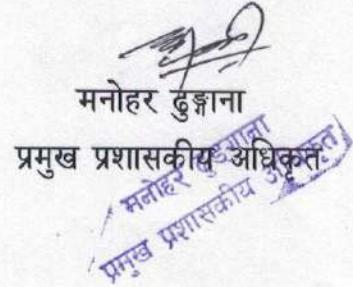 मनोहर ढुङ्गाना
प्रमुख प्रशासकीय अधिकृत
मनोहर ढुङ्गाना
प्रमुख प्रशासकीय अधिकृत